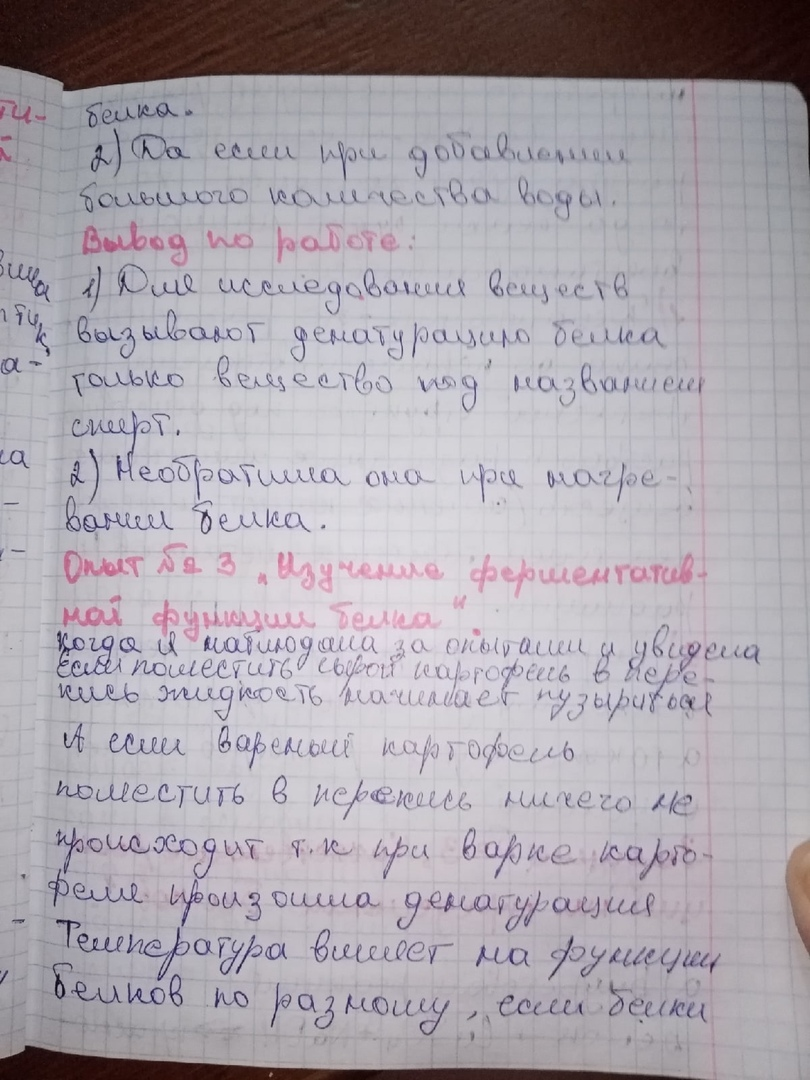 белка.
2) Да если при добавлении
большого количества воды.
Вывод по работе:
1) Для исследования веществ
вызывают денатурацию белка
только вещество под названием
спирт.
2) Необратима она при нагре-
вании белка.
Опыт № 3 „Изучение ферментатив-
ной функции белка".
когда я наблюдала за опытами и увидела
если поместить сырой картофель в пере-
кись жидкость начинает пузыриться
А если варёный картофель
поместить в перекись ничего не
происходит т.к при варке карто-
феля произошла денатурация
Температура влияет на функции
белков по разному, если белки